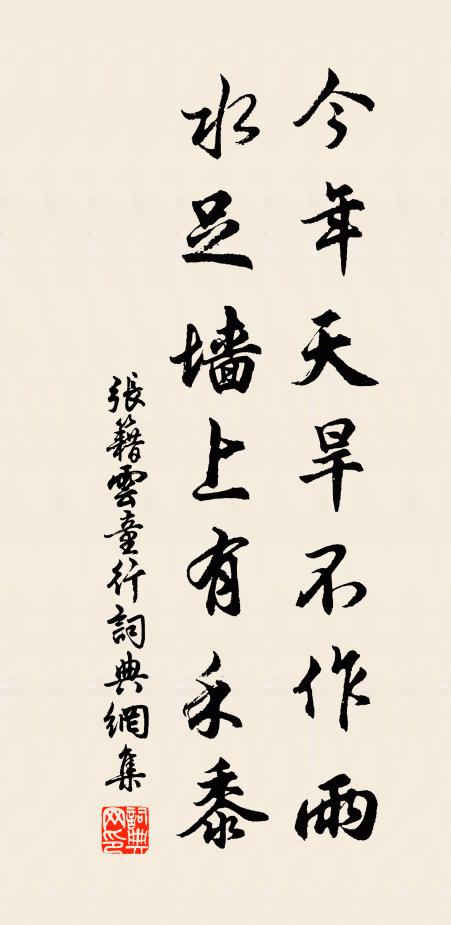 今年天旱不作雨
水足墙上有禾黍
張籍雲童行詞典網集
詞典网印